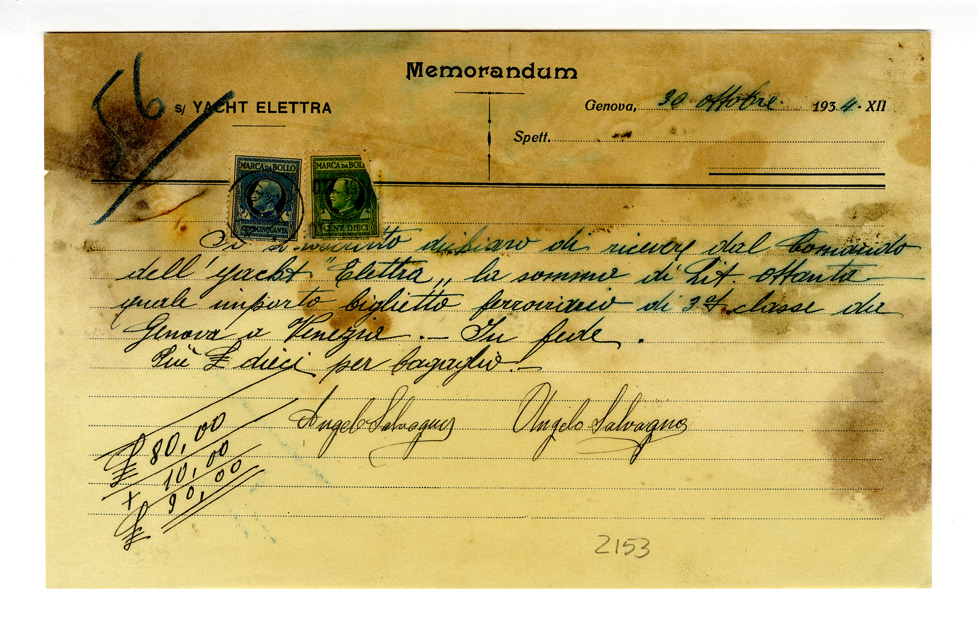 56
Memorandum
s/ YACHT ELETTRA
Genova, 30 ottobre 1934-XII
Spett.
MARCA DA BOLLO MARCA DA BOLL
CENT. CINQUANTA CENT. DIECI
Io di ricevere dal Comando
dell'yacht "Elettra" la somma di Lit. ottanta
quale importo biglietto ferroviario di 3ª classe da
Genova a Venezia. - In fede.
Più £ dieci per bagaglio. -
Angelo Salvagno Angelo Salvagno
£ 80,00
+ 10,00
£ 90,00
2153